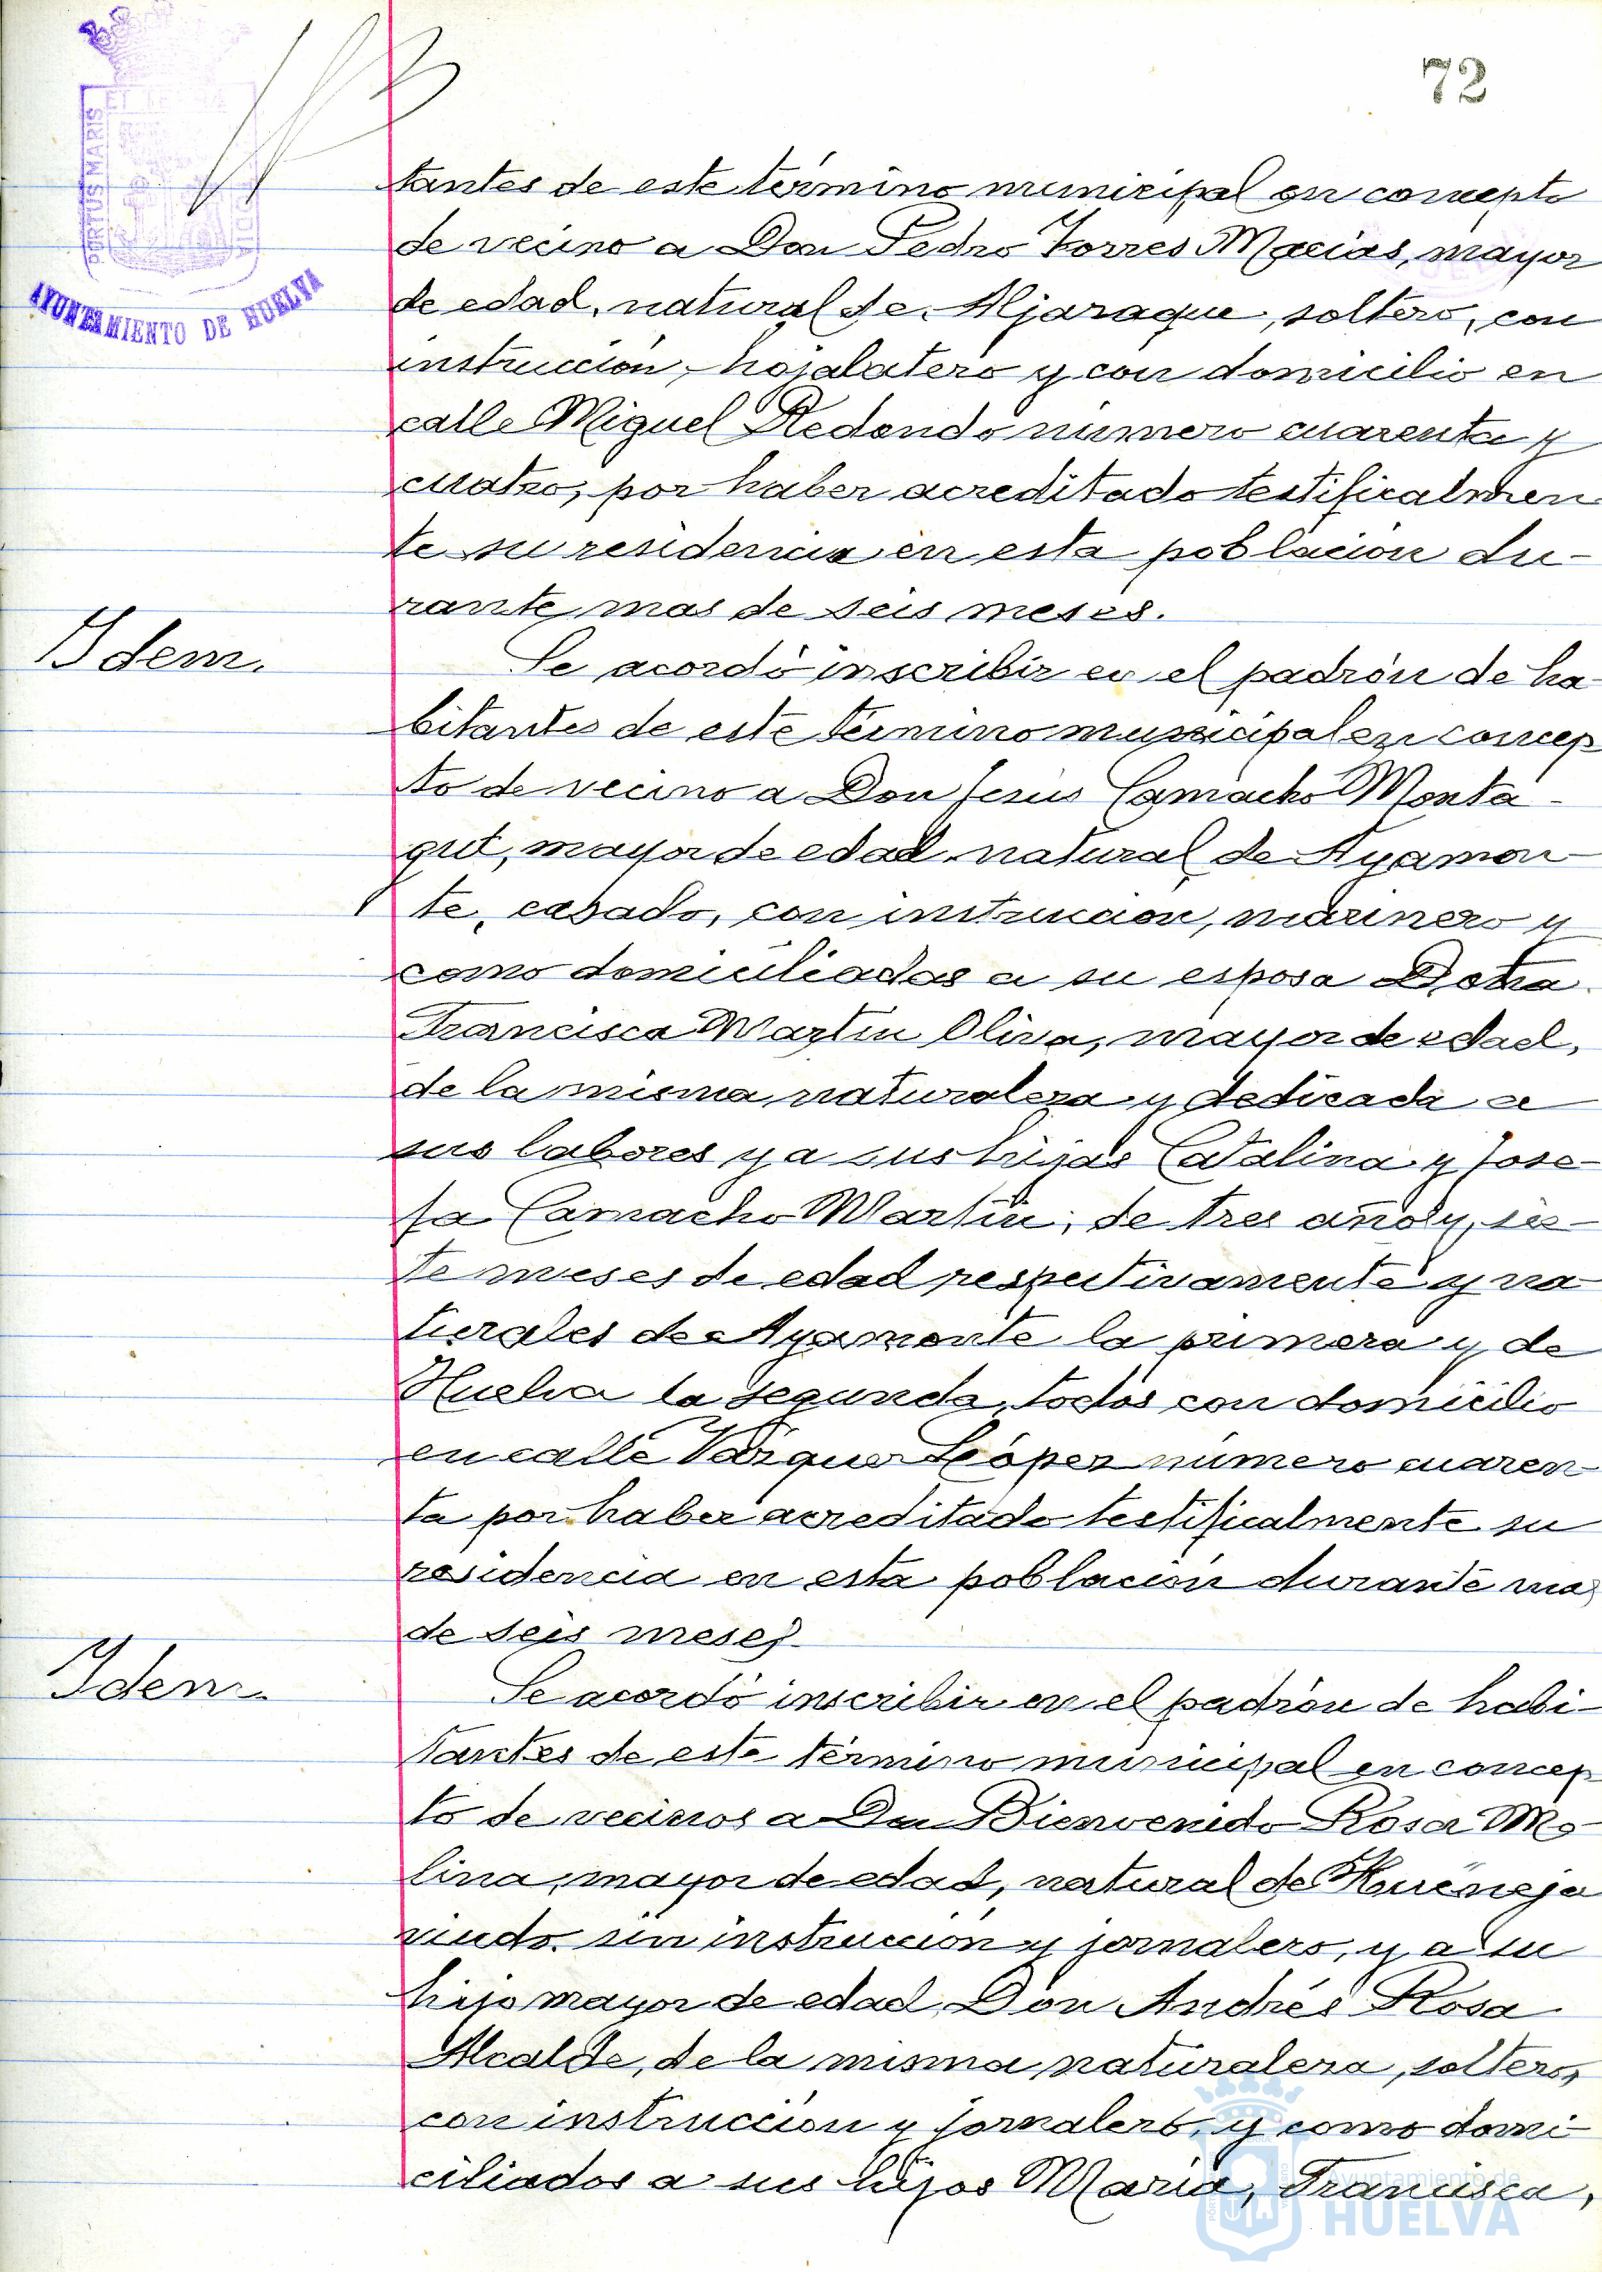 72
PORTUS MARIS
AYUNTAMIENTO DE HUELVA
tantes de este término municipal en concepto
de vecino a Don Pedro Torres Macias, mayor
de edad, natural de Aljaraque, soltero, con
instrucción, hojalatero y con domicilio en
calle Miguel Redondo número cuarenta y
cuatro, por haber acreditado testificalmen
te su residencia en esta población du-
rante mas de seis meses.
Idem.
Se acordó inscribir en el padrón de ha-
bitantes de este término municipal en concep
to de vecino a Don Jesús Camacho Monta-
gut, mayor de edad natural de Ayamon-
te, casado, con instrucción, marinero y
como domiciliadas a su esposa Doña
Francisca Martín Oliva, mayor de edad,
de la misma naturaleza y dedicada a
sus labores y a sus hijas Catalina y Jose-
fa Camacho Martín, de tres años y sie-
te meses de edad respectivamente y na
turales de Ayamonte la primera y de
Huelva la segunda, todos con domicilio
en calle Vázquez López número cuaren-
ta por haber acreditado testificalmente su
residencia en esta población durante mas
de seis meses
Idem.
Se acordó inscribir en el padrón de habi-
tantes de este término municipal en concep
to de vecinos a Don Bienvenido Rosa Mo-
lina, mayor de edad, natural de Huéneja
viudo sin instrucción y jornalero, y a su
hijo mayor de edad Don Andrés Rosa
Alcalde, de la misma naturaleza, soltero,
con instrucción y jornalero, y como domi-
ciliados a sus hijos María, Francisca,
Ayuntamiento de
HUELVA